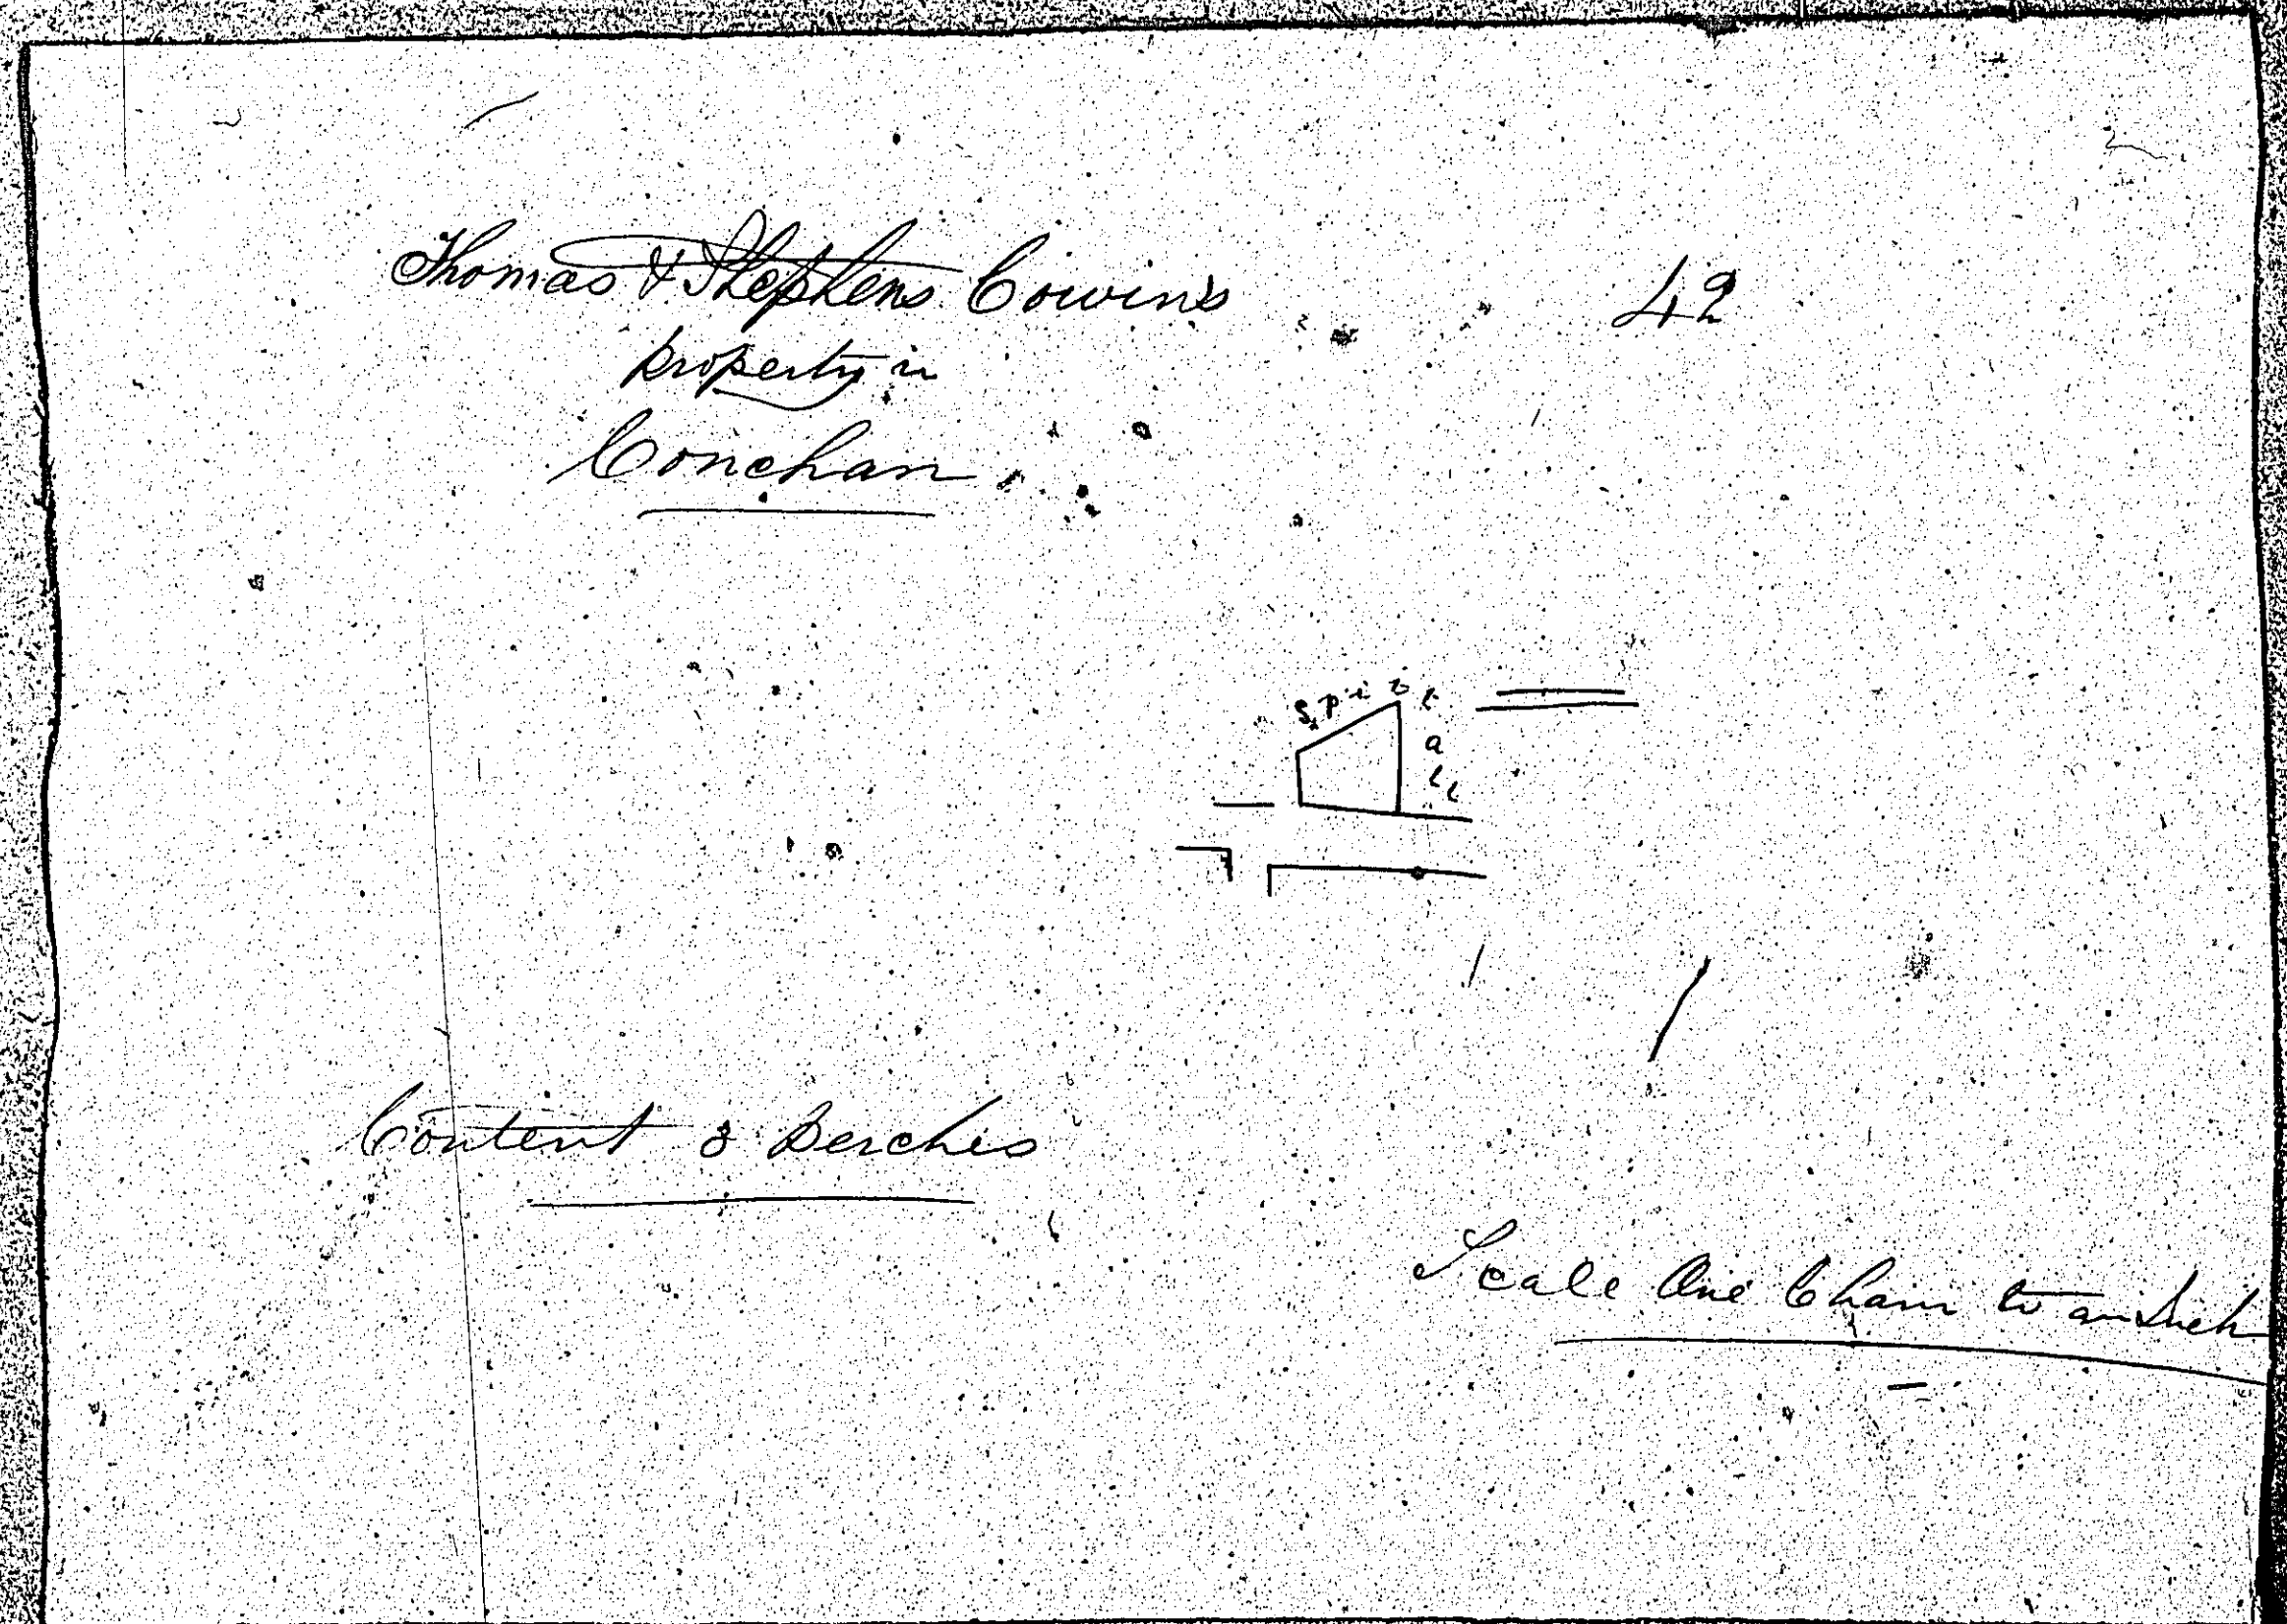 Thomas & Stephens Cowin's
42
property in
Conchan
Spittall
Content 8 Perches
Scale One Chain to an Inch